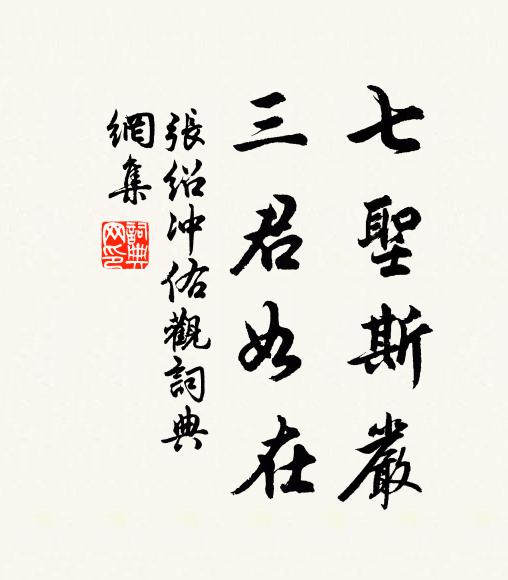 七聖斯嚴
三君如在
張紹沖俗觀詞典
網集
詞典
网印